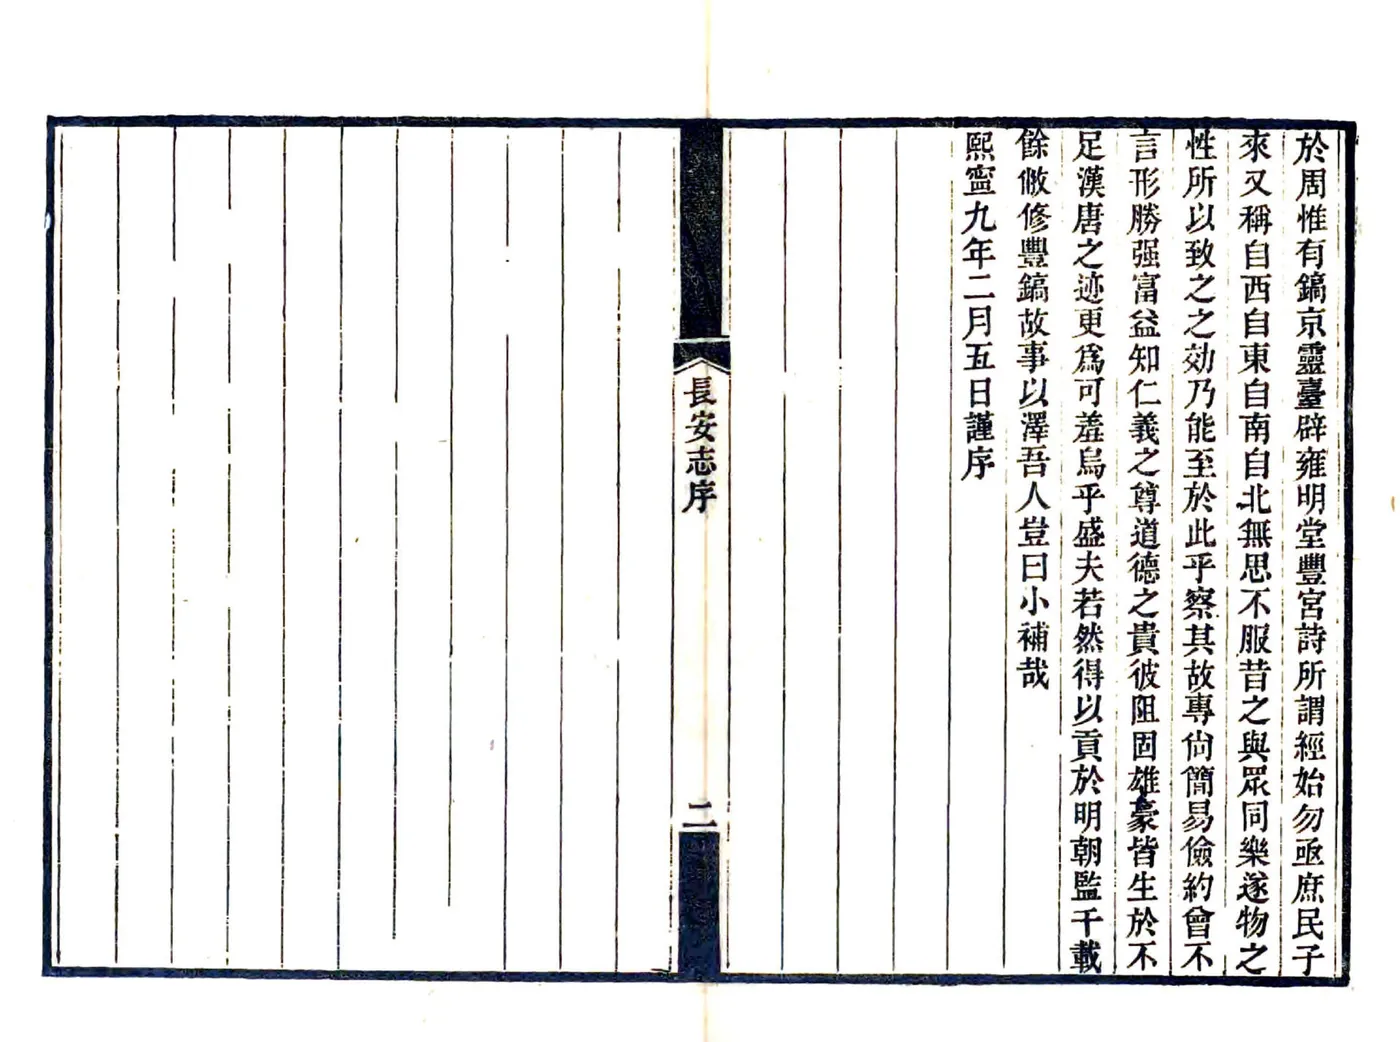 於周惟有鎬京靈臺辟雍明堂豐宮詩所謂經始勿亟庶民子
來又稱自西自東自南自北無思不服昔之與眾同樂遂物之
性所以致之之効乃能至於此乎察其故專尚簡易儉約曾不
言形勝强富益知仁義之尊道德之貴彼阻固雄豪皆生於不
足漢唐之迹更爲可羞烏乎盛夫若然得以貢於明朝監千載
餘俶修豐鎬故事以澤吾人豈曰小補哉
熙寍九年二月五日謹序
長安志序
二